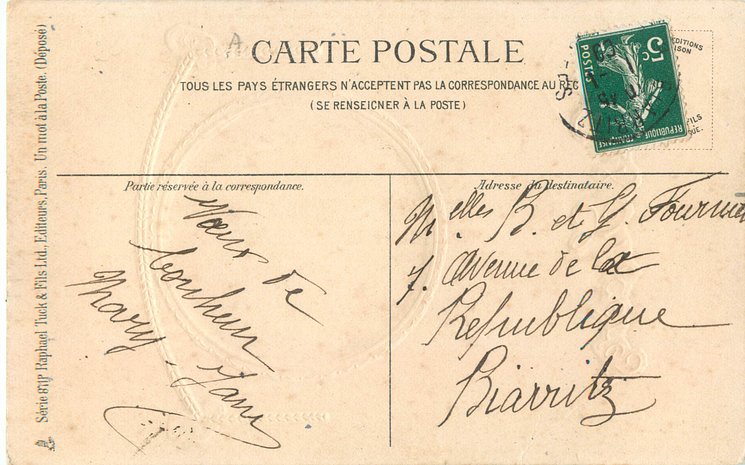 CARTE POSTALE
TOUS LES PAYS ÉTRANGERS N'ACCEPTENT PAS LA CORRESPONDANCE AU REC
(SE RENSEIGNER À LA POSTE)
EDITIONS
ISON
5c
POSTES
REPUBLIQUE FRANÇAISE
FILS
Partie réservée à la correspondance.
Vœux de
bonheur
Mary Jane
Adresse du destinataire.
Melles R. et Y. Fournier
7. Avenue de la
République
Biarritz
Série 871P Raphael Tuck & Fils Ltd., Editeurs, Paris. Un mot à la Poste. (Déposé)